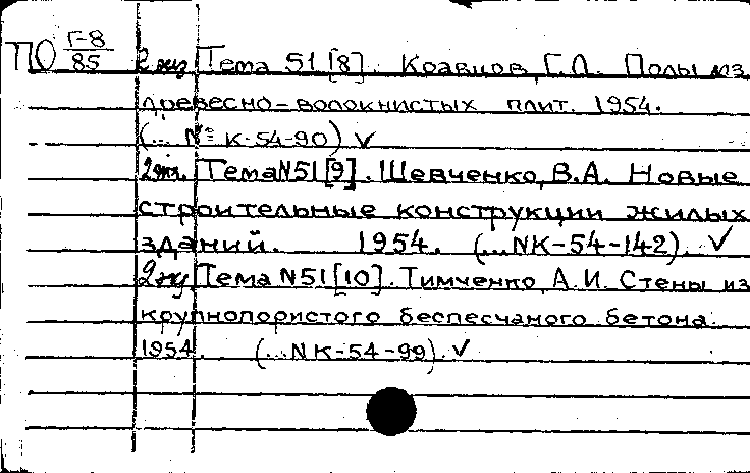 ПО Г-8/85 2 экз Тема 51 [8]. Кравцов, Г.Л. Полы из
древесно-волокнистых плит. 1954.
(... № К-54-90) V
2 экз. Тема N51 [9]. Шевченко, В.А. Новые
строительные конструкции жилых
зданий. 1954. (... NК-54-142). V
2 экз Тема N51 [10]. Тимченко, А.И. Стены из
крупнопористого беспесчаного бетона.
1954. (... NК-54-99). V